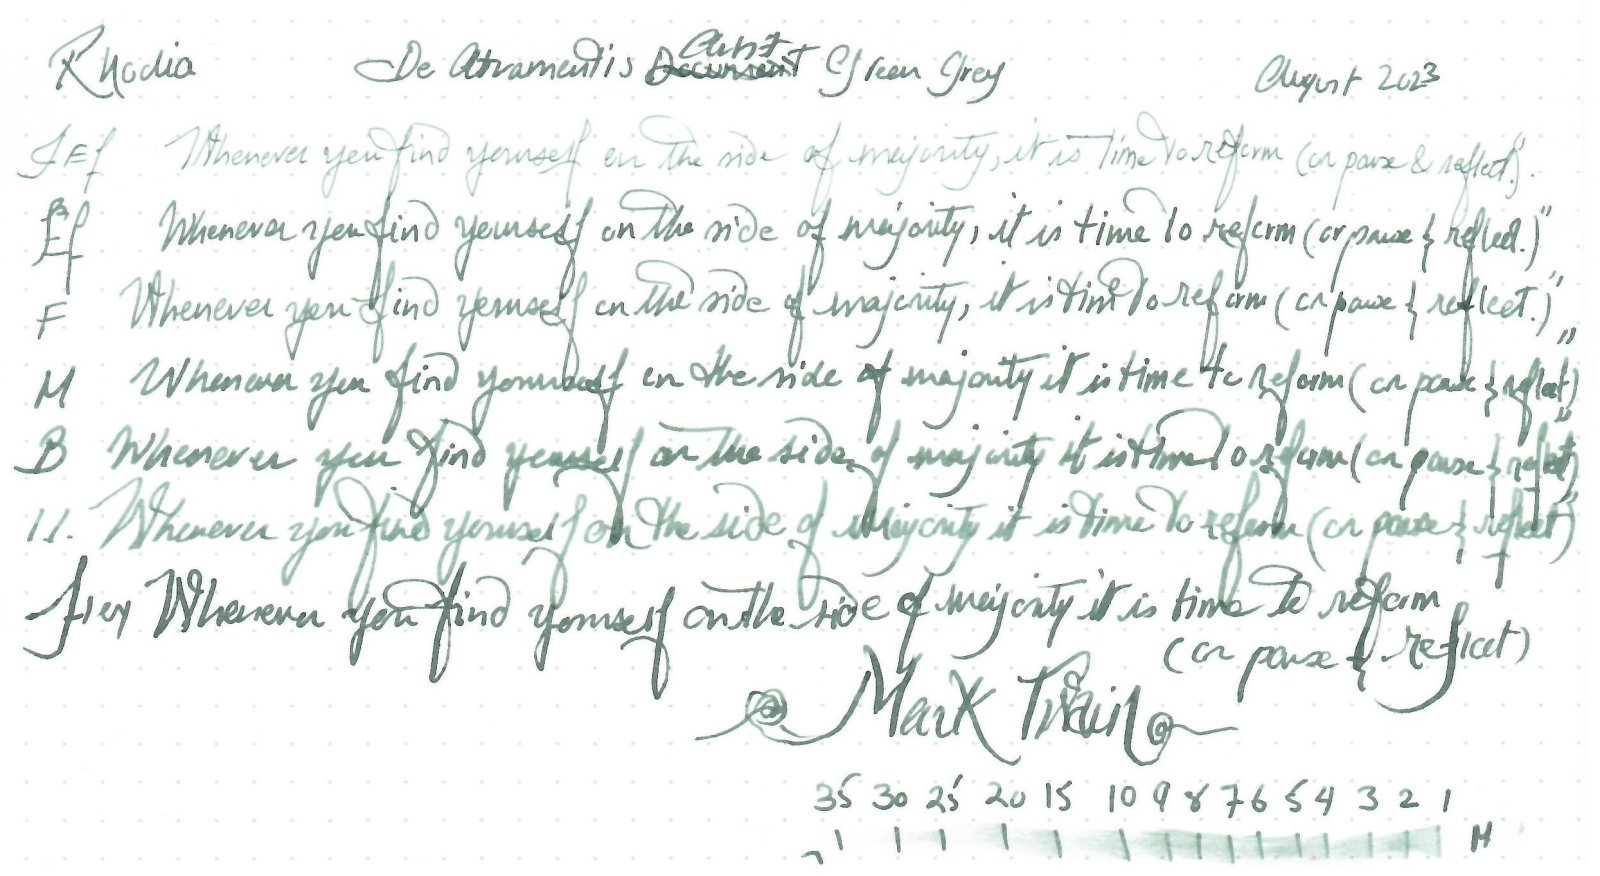 Rhodia De Atramentis Document Artist Green Grey August 2023
JEF Whenever you find yourself on the side of majority, it is Time to reform (or pause & reflect.)"
EF Whenever you find yourself on the side of majority, it is time to reform (or pause & reflect.)"
F Whenever you find yourself on the side of majority, it is time to reform (or pause & reflect.)"
M Whenever you find yourself on the side of majority it is time to reform (or pause & reflect)"
B Whenever you find yourself on the side of majority it is time to reform (or pause & reflect)"
1.1. Whenever you find yourself on the side of majority it is time to reform (or pause & reflect)"
Flex Whenever you find yourself on the side of majority it is time to reform
(or pause & reflect)
Mark Twain
35 30 25 20 15 10 9 8 7 6 5 4 3 2 1
M